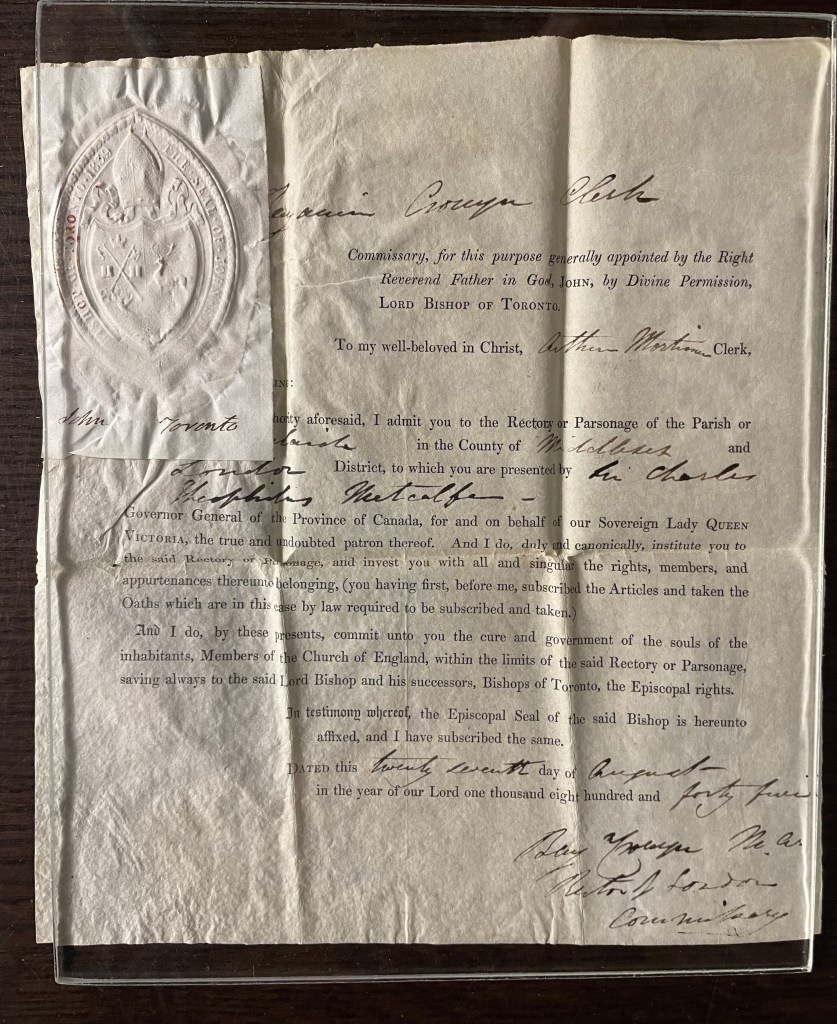 THE SEAL OF
1839
John Toronto
Benjamin Cronyn Clerk
Commissary, for this purpose generally appointed by the Right
Reverend Father in God, JOHN, by Divine Permission,
LORD BISHOP OF TORONTO.
To my well-beloved in Christ, Arthur Mortimer Clerk,
aforesaid, I admit you to the Rectory or Parsonage of the Parish or
in the County of Middlesex and
London District, to which you are presented by Sir Charles
Theophilus Metcalfe –
Governor General of the Province of Canada, for and on behalf of our Sovereign Lady QUEEN
VICTORIA, the true and undoubted patron thereof. And I do, duly and canonically, institute you to
the said Rectory or Parsonage, and invest you with all and singular the rights, members, and
appurtenances thereunto belonging, (you having first, before me, subscribed the Articles and taken the
Oaths which are in this case by law required to be subscribed and taken.)
And I do, by these presents, commit unto you the cure and government of the souls of the
inhabitants, Members of the Church of England, within the limits of the said Rectory or Parsonage,
saving always to the said Lord Bishop and his successors, Bishops of Toronto, the Episcopal rights.
In testimony whereof, the Episcopal Seal of the said Bishop is hereunto
affixed, and I have subscribed the same.
DATED this twenty seventh day of August
in the year of our Lord one thousand eight hundred and forty five
Benj Cronyn M. A.
Rector of London
Commissary